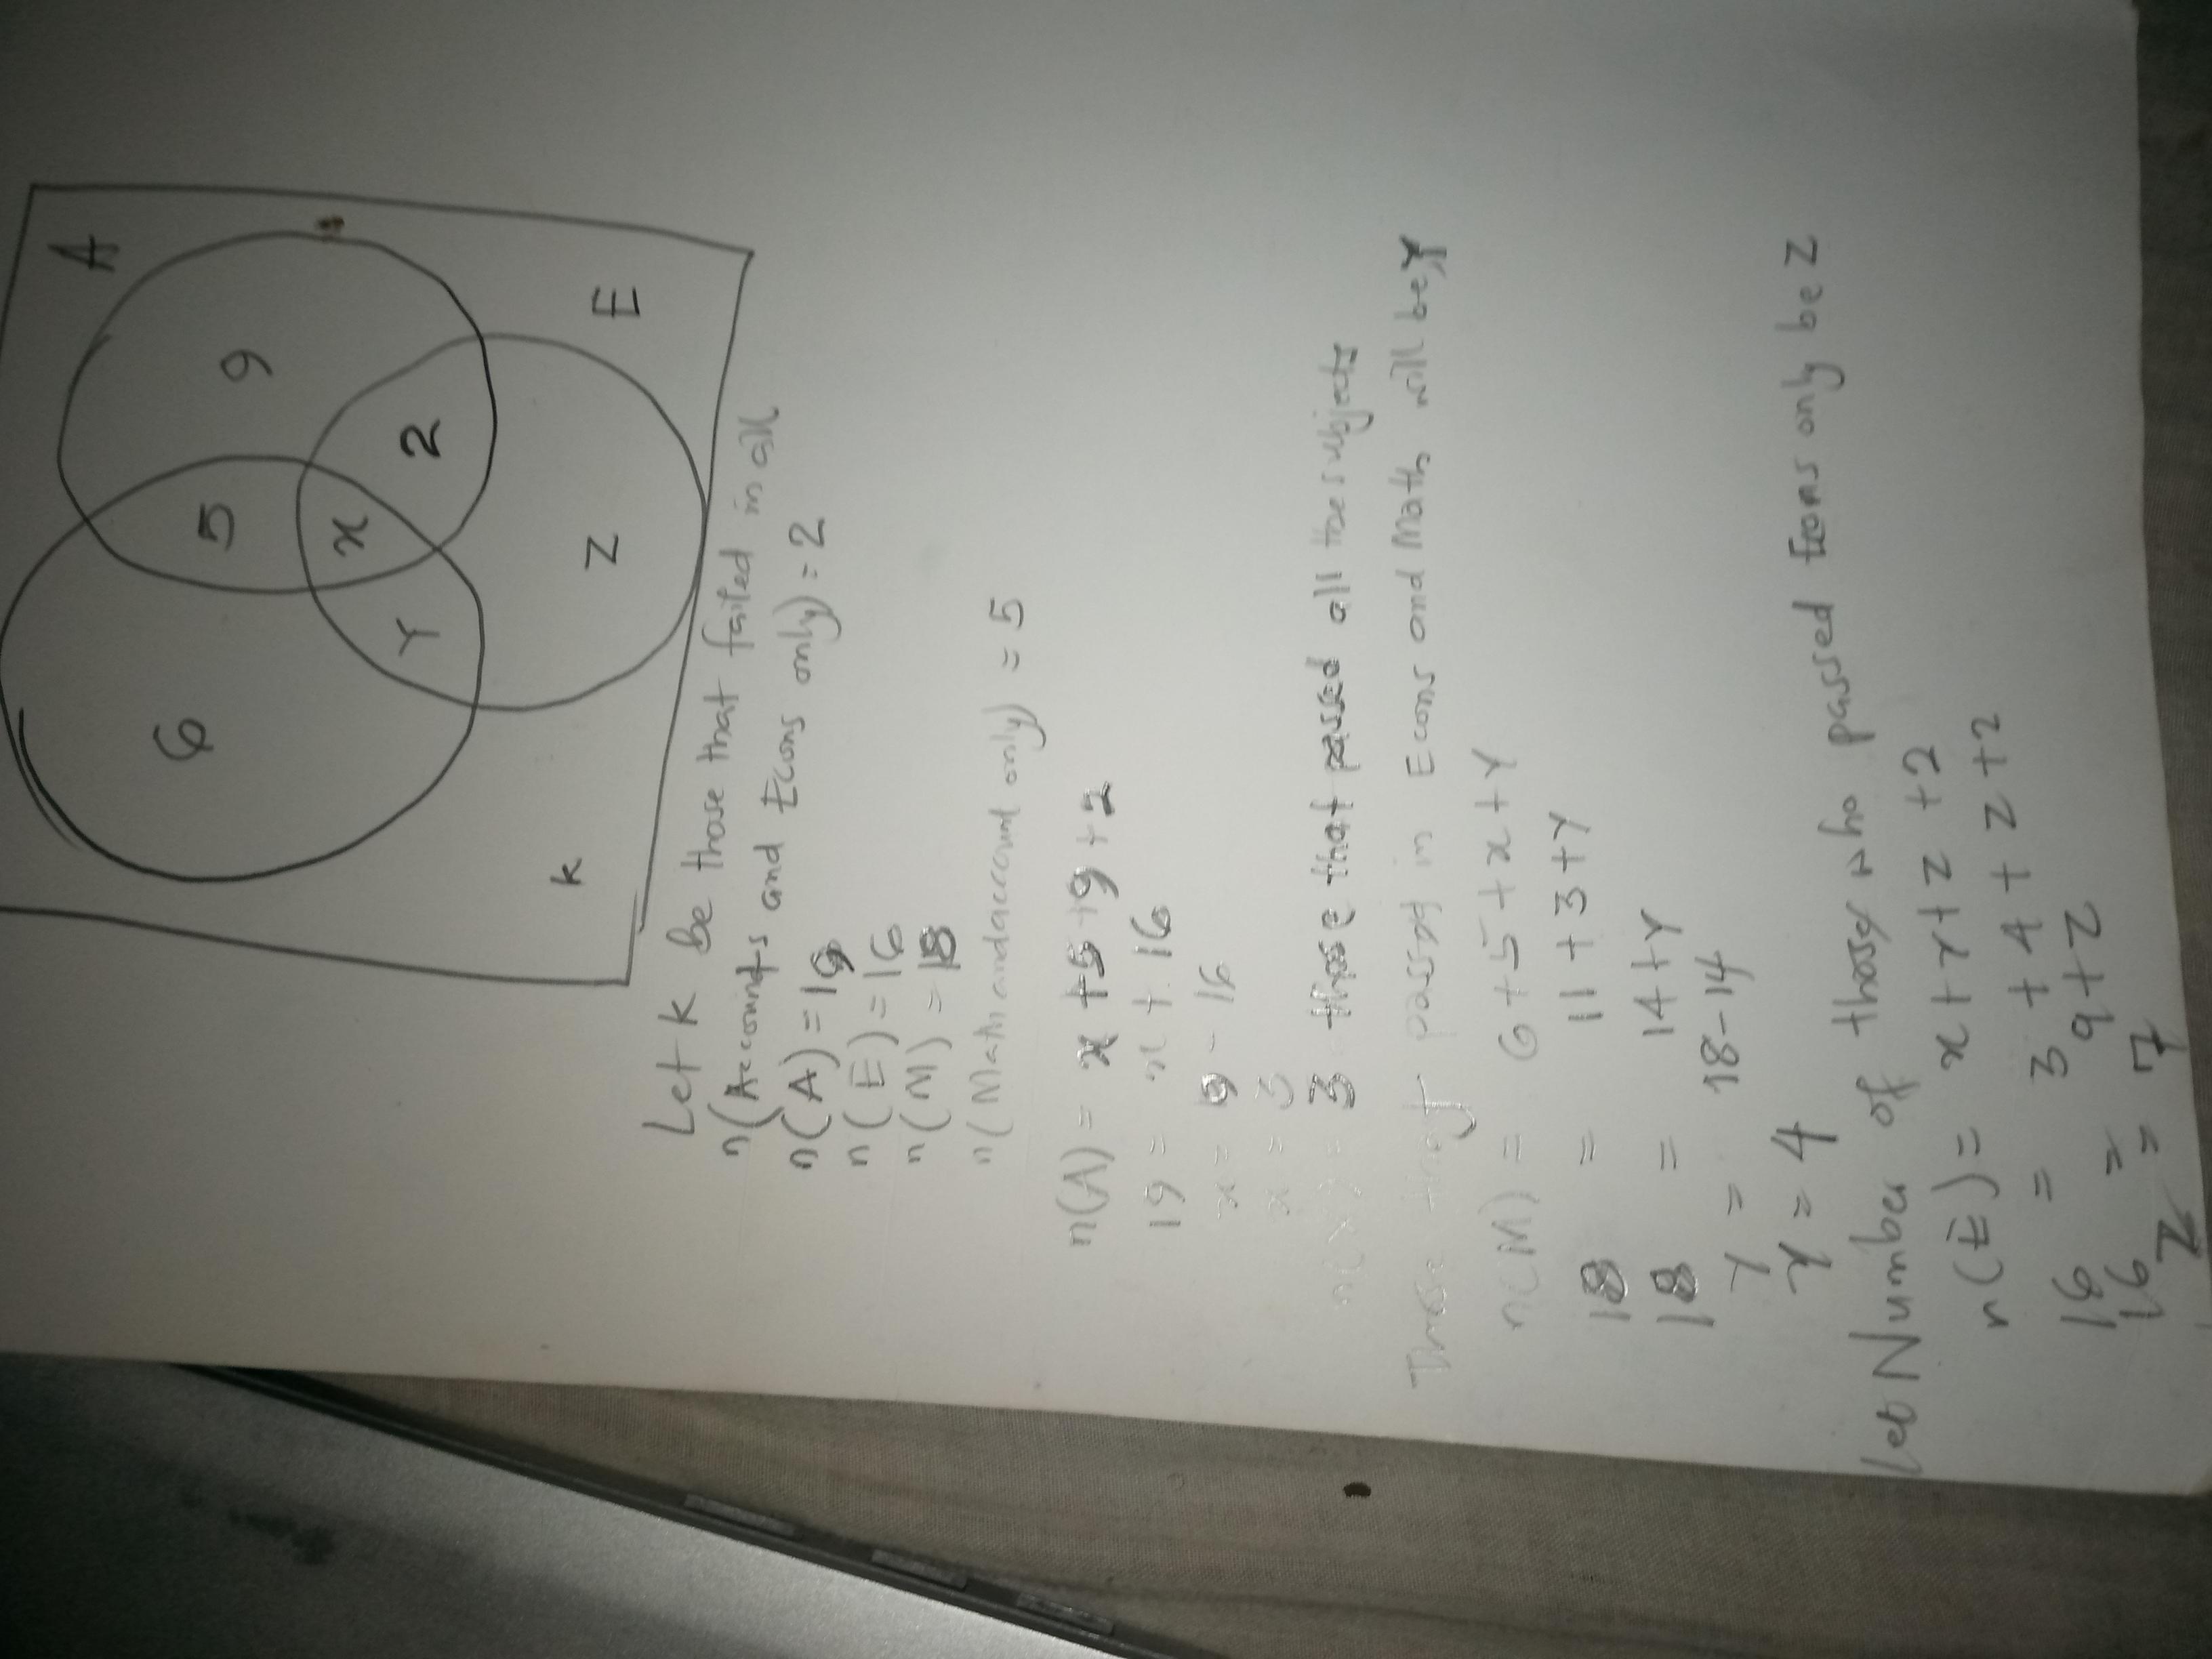 A
6
5
9
Y
x
2
Z
E
k
Let k Be those that failed in all
n(Accounts and Econs only) = 2
n(A) = 19
n(E) = 16
n(M) = 18
n(Math and account only) = 5
n(A) = x + 5 + 9 + 2
19 = x + 16
x = 9 - 16
x = 3
3 those that passed all the subjects
Those that passed in Econs and Maths will be Y
n(M) = 6 + 5 + x + Y
18 = 11 + 3 + Y
18 = 14 + Y
Y = 18 - 14
Y = 4
Let Number of those who passed Econs only be Z
n(E) = x + Y + Z + 2
16 = 3 + 4 + Z + 2
16 = 9 + Z
Z = 7